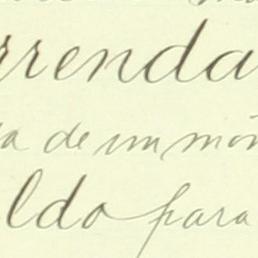 rrenda
a de un món
ldo para